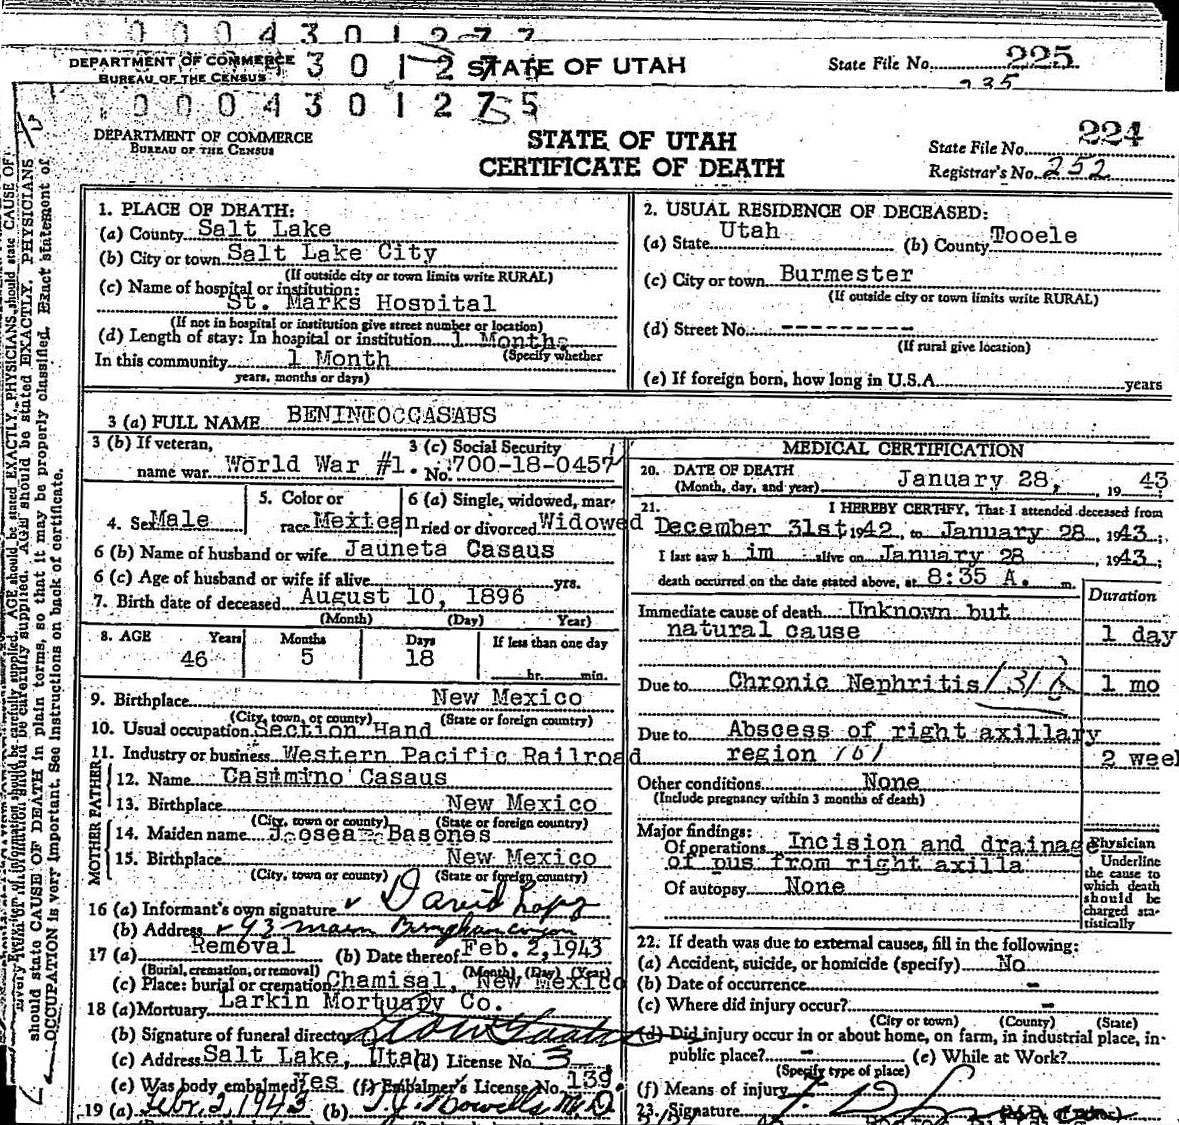 0 0 0 4 3 0 1 2 7 7
DEPARTMENT OF COMMERCE
BUREAU OF THE CENSUS
3 0 1 2
STATE OF UTAH
State File No. 225
235
0 0 0 4 3 0 1 2 7 5
DEPARTMENT OF COMMERCE
BUREAU OF THE CENSUS
STATE OF UTAH
CERTIFICATE OF DEATH
State File No. 224
Registrar's No. 252
1. PLACE OF DEATH:
(a) County Salt Lake
(b) City or town Salt Lake City
(If outside city or town limits write RURAL)
(c) Name of hospital or institution:
St. Marks Hospital
(If not in hospital or institution give street number or location)
(d) Length of stay: In hospital or institution 1 Months
(Specify whether
In this community 1 Month
years, months or days)
2. USUAL RESIDENCE OF DECEASED:
(a) State Utah (b) County Tooele
(c) City or town Burmester
(If outside city or town limits write RURAL)
(d) Street No. ----------
(If rural give location)
(e) If foreign born, how long in U.S.A. years
3 (a) FULL NAME BENINIOCCASAUS
3 (b) If veteran, 3 (c) Social Security
name war. World War #1. No. 700-18-0457
4. Sex Male
5. Color or
race Mexican
6 (a) Single, widowed, mar-
ried or divorced Widowed
6 (b) Name of husband or wife Jauneta Casaus
6 (c) Age of husband or wife if alive yrs.
7. Birth date of deceased August 10, 1896
(Month) (Day) Year)
8. AGE Years Months Days If less than one day
46 5 18 hr. min.
9. Birthplace New Mexico
(City, town, or county) (State or foreign country)
10. Usual occupation Section Hand
11. Industry or business Western Pacific Railroad
FATHER
12. Name Casimino Casaus
13. Birthplace New Mexico
(City, town or county) (State or foreign country)
MOTHER
14. Maiden name Josea Basones
15. Birthplace New Mexico
(City, town or county) (State or foreign country)
16 (a) Informant's own signature David Lopz
(b) Address 93 main
17 (a) Removal (b) Date thereof Feb. 2, 1943
(Burial, cremation, or removal) (Month) (Day) (Year)
(c) Place: burial or cremation Chamisal, New Mexico
18 (a) Mortuary Larkin Mortuary Co.
(b) Signature of funeral director
(c) Address Salt Lake, Utah (d) License No. 3
(e) Was body embalmed? Yes (f) Embalmer's License No. 139.
19 (a) Febr. 2, 1943 (b)
MEDICAL CERTIFICATION
20. DATE OF DEATH
(Month, day, and year) January 28, 19 43
21. I HEREBY CERTIFY, That I attended deceased from
December 31st 1942, to January 28, 1943;
I last saw h im alive on January 28, 1943;
death occurred on the date stated above, at 8:35 A. m.
Duration
Immediate cause of death Unknown but
natural cause 1 day
Due to Chronic Nephritis 131 1 mo
Due to Abscess of right axillary
region 151 2 week
Other conditions None
(Include pregnancy within 3 months of death)
Major findings:
Of operations Incision and drainage
of pus from right axilla
Of autopsy None
Physician
Underline
the cause to
which death
should be
charged sta-
tistically
22. If death was due to external causes, fill in the following:
(a) Accident, suicide, or homicide (specify) No
(b) Date of occurrence -
(c) Where did injury occur? -
(City or town) (County) (State)
(d) Did injury occur in or about home, on farm, in industrial place, in-
public place? - (e) While at Work?
(Specify type of place)
(f) Means of injury
23. Signature
should state CAUSE OF DEATH in plain terms, so that it may be properly classified. Exact statement of
OCCUPATION is very important. See instructions on back of certificate.